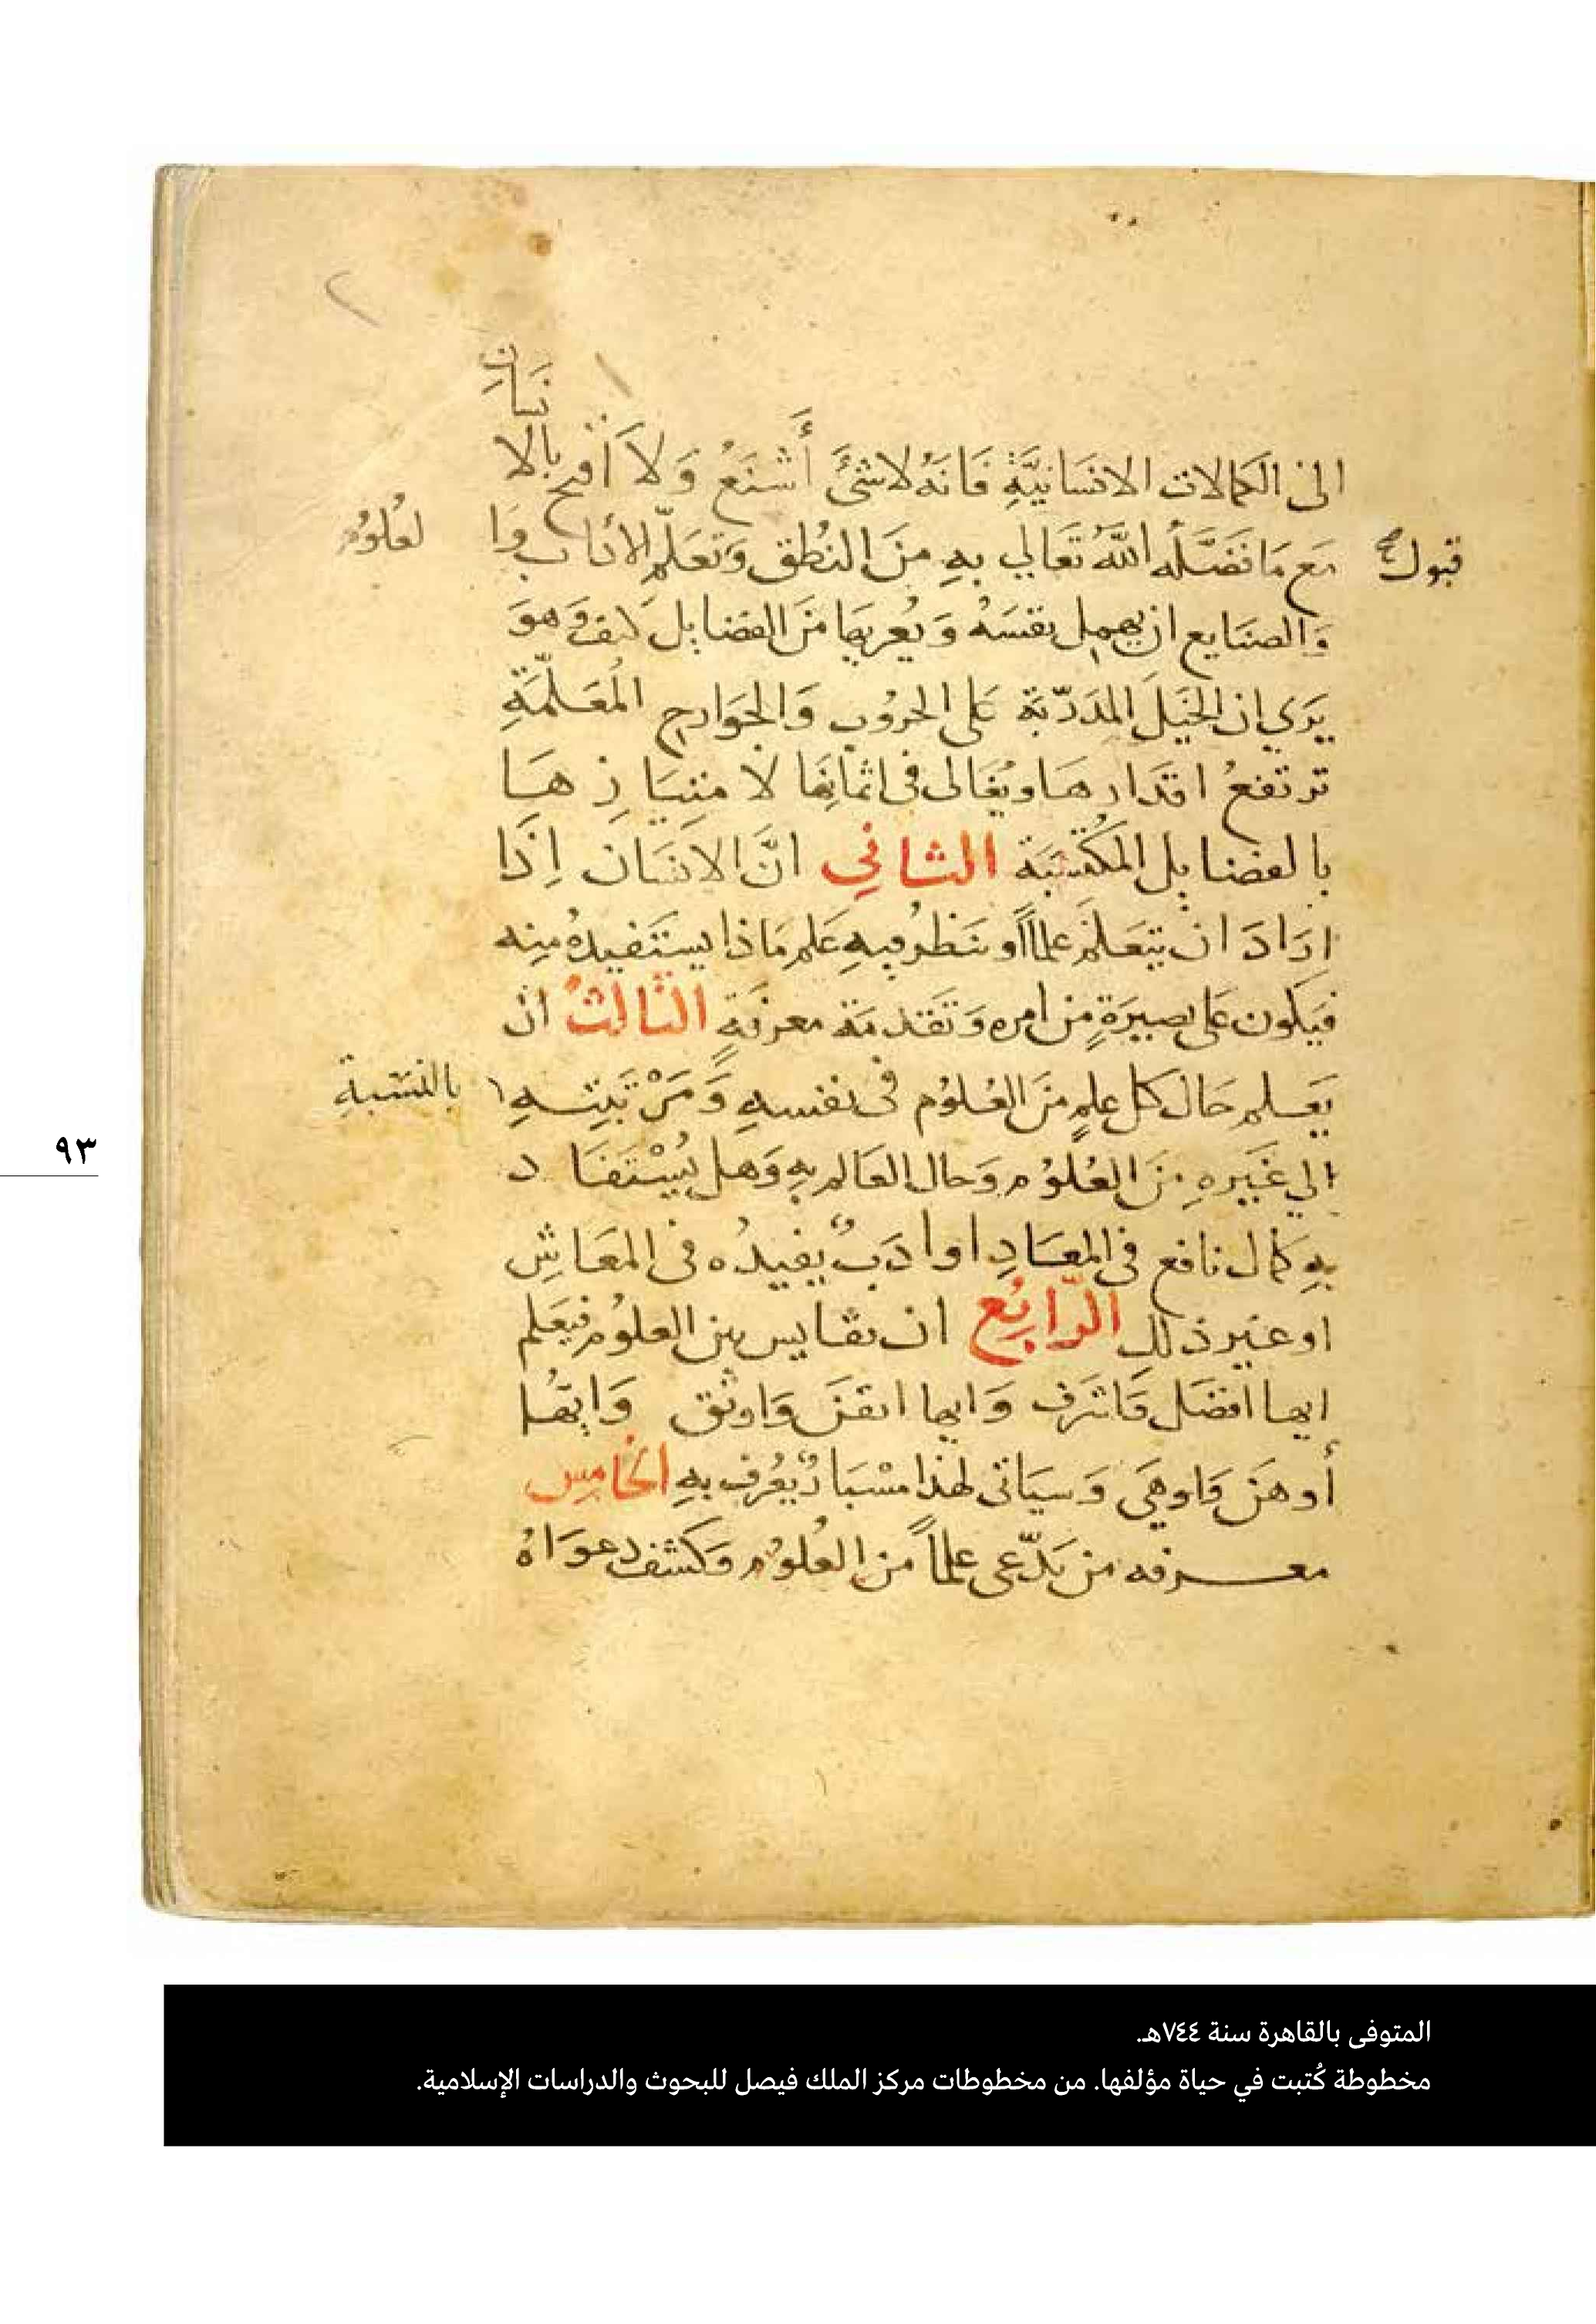 نسان
الى الكمالات الانسانيَّةِ فَانَهُ لاشئَ أَشْنَعُ وَلَا أقبح بالا
قبول مَع مَا فَضَّلَهُ اللَّهُ تَعَالي بِهِ مِنَ النُطْقِ وَتَعَلُّمِ الأداب وَا لعُلوُم
وَالصنَايع ان يهمل نفسَهُ وَيُعريهَا مِنَ الفضايل كيف وَهوَ
يَرَي ان الخَيلَ المُدَرَّبَة عَلى الحروُب وَالجَوَارح المُعَلَّمَةِ
ترتفعُ اقدَارهَا ويُغَالى فى اثمَانِهَا لا متيَازهَا
بالفضايل المُكتَسَبَة الثانِي انَّ الانسَان إذَا
ارَادَ ان يتَعَلَّم علماً أو يَنظُر فيهِ عَلم مَاذا يستَفيدُهُ مِنه
فيَكون عَلى بصيرَةٍ مِن امره وَتَقدمَة معرفَةٍ الثالثُ ان
يَعلم حَال كل علمٍ مِنَ العُلوُم فى نفسهِ وَمَرْتَبتهِ بالنسبةِ
الي غَيرهِ مِنَ العُلوُم وَحال العَالم بهِ وَهل يُسْتَفَاد
بهِ كمال نافع فى المعَادِ اوادَبٌ يفيدُه فى المعَاشِ
او غير ذلك الرَّابِعُ ان يقايس بين العلوُم فيَعلم
ايها افضَل وَاشرَف وَايها اتقَن وَاوثق وَايّهَا
أوهَن وَاوهَي وَسيَاتى لهذا مسْبَارٌ يُعرَف بهِ الخَامِس
معرفه من يَدّعى علماً مِن العُلوُم وَكشف دعوَاهُ
٩٣
المتوفى بالقاهرة سنة ٧٤٤هـ.
مخطوطة كُتبت في حياة مؤلفها. من مخطوطات مركز الملك فيصل للبحوث والدراسات الإسلامية.